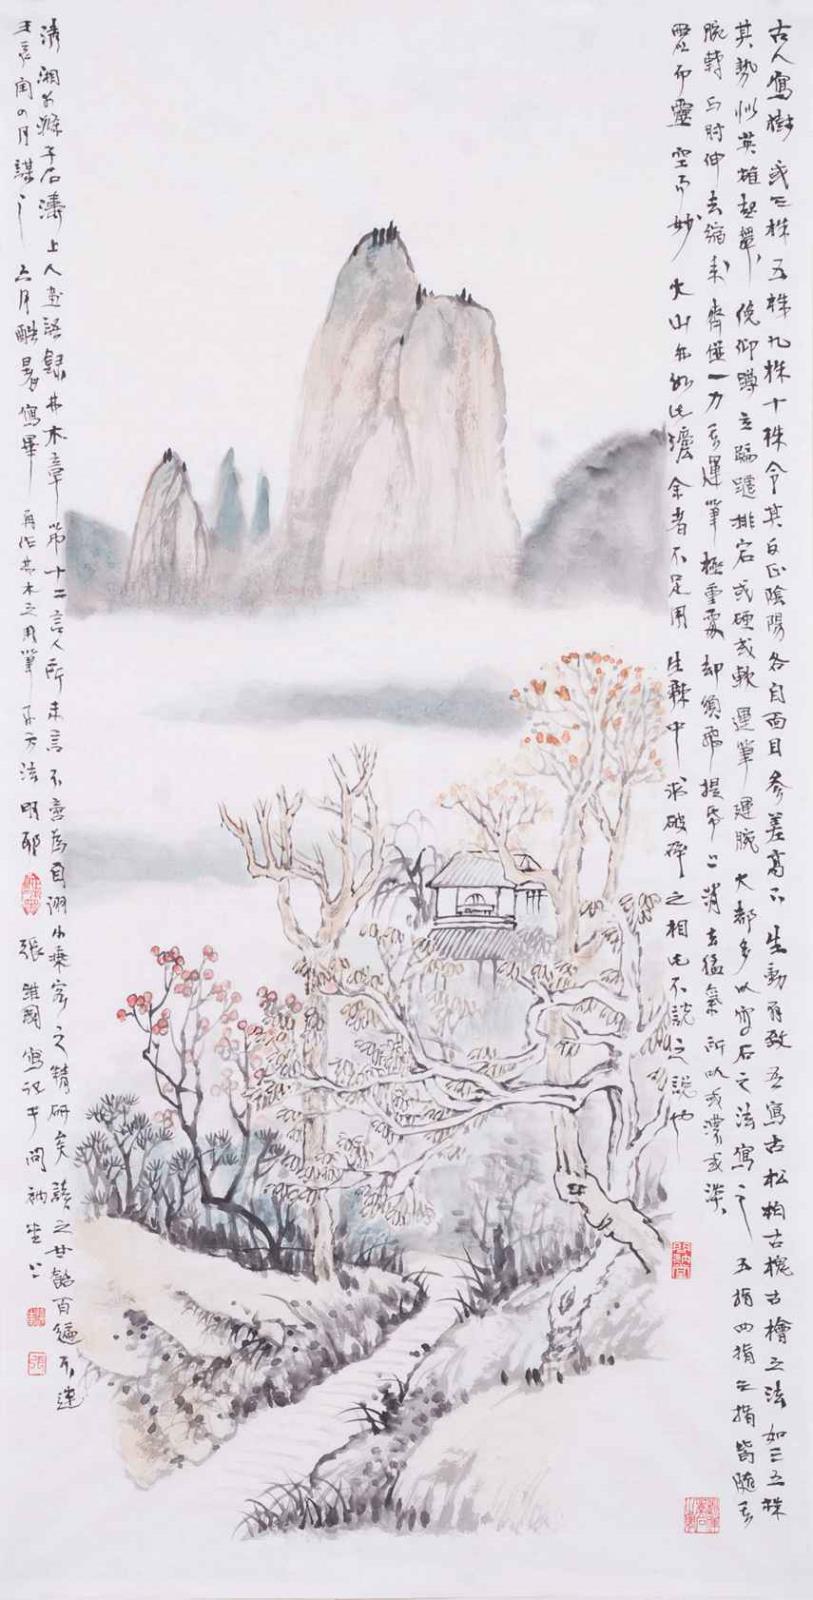 古人寫樹或三株五株九株十株令其反正陰陽各自面目參差高下生動有致吾寫古松柏古槐古檜之法如三五株
其勢似英雄起舞俛仰蹲立蹁躚排宕或硬或軟運筆運腕大都多以寫石之法寫之五指四指三指皆隨其
腕轉與肘伸去縮來齊併一力其運筆極重處却須飛提紙上消去猛氣所以或濃或淡
虛而靈空而妙大山亦如此法餘者不足用生辣中求破碎之相此不說之說也
清湘苦瓜子石濤上人畫語錄林木章第十二言人所未言不
壬辰閏四月 六月酷暑寫畢再作林木之用筆 方法明耶
張 國寫記于問